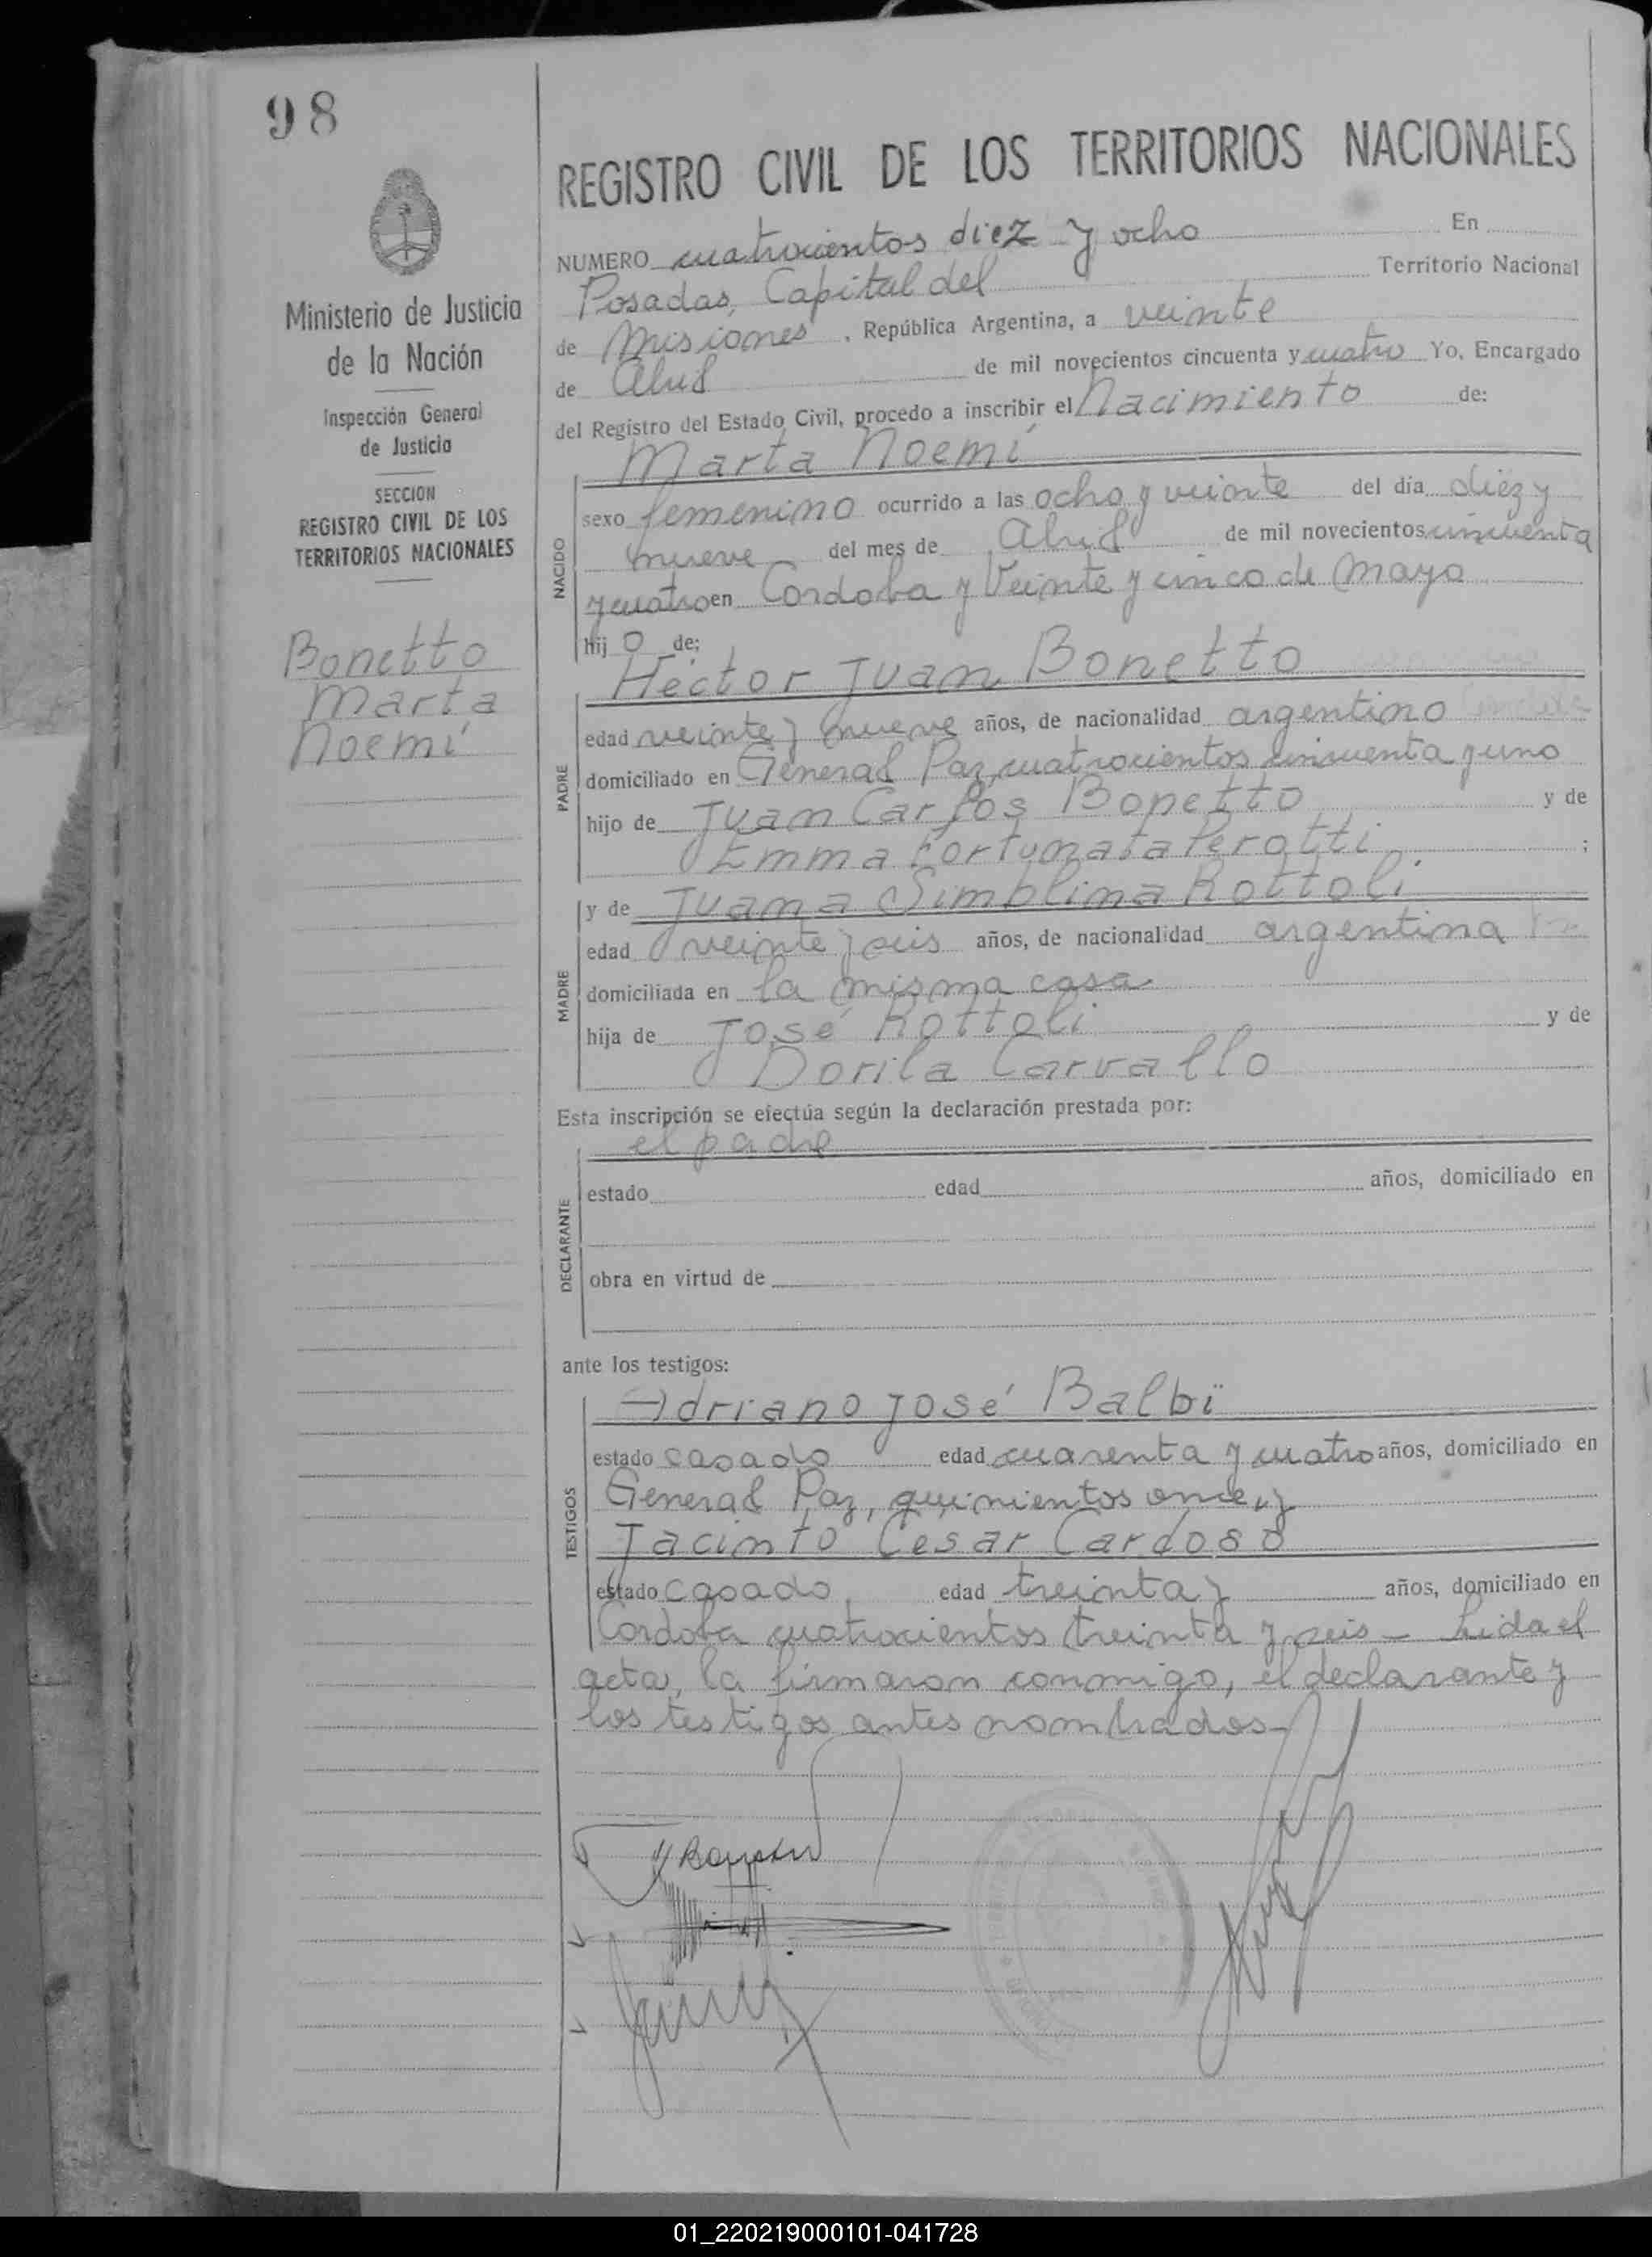 98
Ministerio de Justicia
de la Nación
Inspección General
de Justicia
SECCION
REGISTRO CIVIL DE LOS
TERRITORIOS NACIONALES
Bonetto
Marta
Noemí
REGISTRO CIVIL DE LOS TERRITORIOS NACIONALES
NUMERO cuatrocientos diez y ocho En
Posadas, Capital del Territorio Nacional
de Misiones, República Argentina, a veinte
de Abril de mil novecientos cincuenta y cuatro Yo, Encargado
del Registro del Estado Civil, procedo a inscribir el Nacimiento de:
Marta Noemí
NACIDO
sexo femenino ocurrido a las ocho y veinte del día diez y
nueve del mes de Abril de mil novecientos cincuenta
y cuatro en Cordoba y Veinte y cinco de Mayo
hij o de;
Héctor Juan Bonetto
PADRE
edad veinte y nueve años, de nacionalidad argentino
domiciliado en General Paz, cuatrocientos cincuenta y uno
hijo de Juan Carlos Bonetto y de
Emma Fortunata Perotti ;
y de Juana Simblina Rottoli
MADRE
edad veinte y seis años, de nacionalidad argentina
domiciliada en la misma casa
hija de José Rottoli y de
Dorila Carvallo
Esta inscripción se efectúa según la declaración prestada por:
el padre
DECLARANTE
estado edad años, domiciliado en
obra en virtud de
ante los testigos:
Adriano José Balbi
TESTIGOS
estado casado edad cuarenta y cuatro años, domiciliado en
General Paz, quinientos once, y
Jacinto Cesar Cardoso
estado casado, edad treinta y años, domiciliado en
Cordoba cuatrocientos treinta y seis - Leida el
acta, la firmaron conmigo, el declarante y
los testigos antes nombrados-
01_220219000101-041728